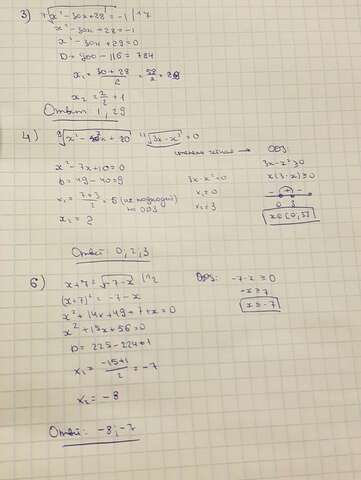 3) ⁷√x² - 30x + 28 = -1 | ^7
x² - 30x + 28 = -1
x² - 30x + 29 = 0
D = 900 - 116 = 784
x₁ = 30 + 28 / 2 = 58 / 2 = 29
x₂ = 2 / 2 = 1
Ответ 1, 29
4) √x² - x + 10 √3x - x² = 0
степень чётная → ОДЗ
x² - 7x + 10 = 0
D = 49 - 40 = 9
x₁ = 7 + 3 / 2 = 5 (не подходит по ОДЗ)
x₂ = 2
3x - x² = 0
x₁ = 0
x₂ = 3
3x - x² ≥ 0
x(3 - x) ≥ 0
- + -
0 3
x ∈ [0, 3]
Ответ: 0, 2, 3
6) x + 7 = √-7 - x | ^2
(x + 7)² = -7 - x
x² + 14x + 49 + 7 + x = 0
x² + 15x + 56 = 0
D = 225 - 224 = 1
x₁ = -15 + 1 / 2 = -7
x₂ = -8
ОДЗ: -7 - x ≥ 0
-x ≥ 7
x ≤ -7
Ответ: -8; -7